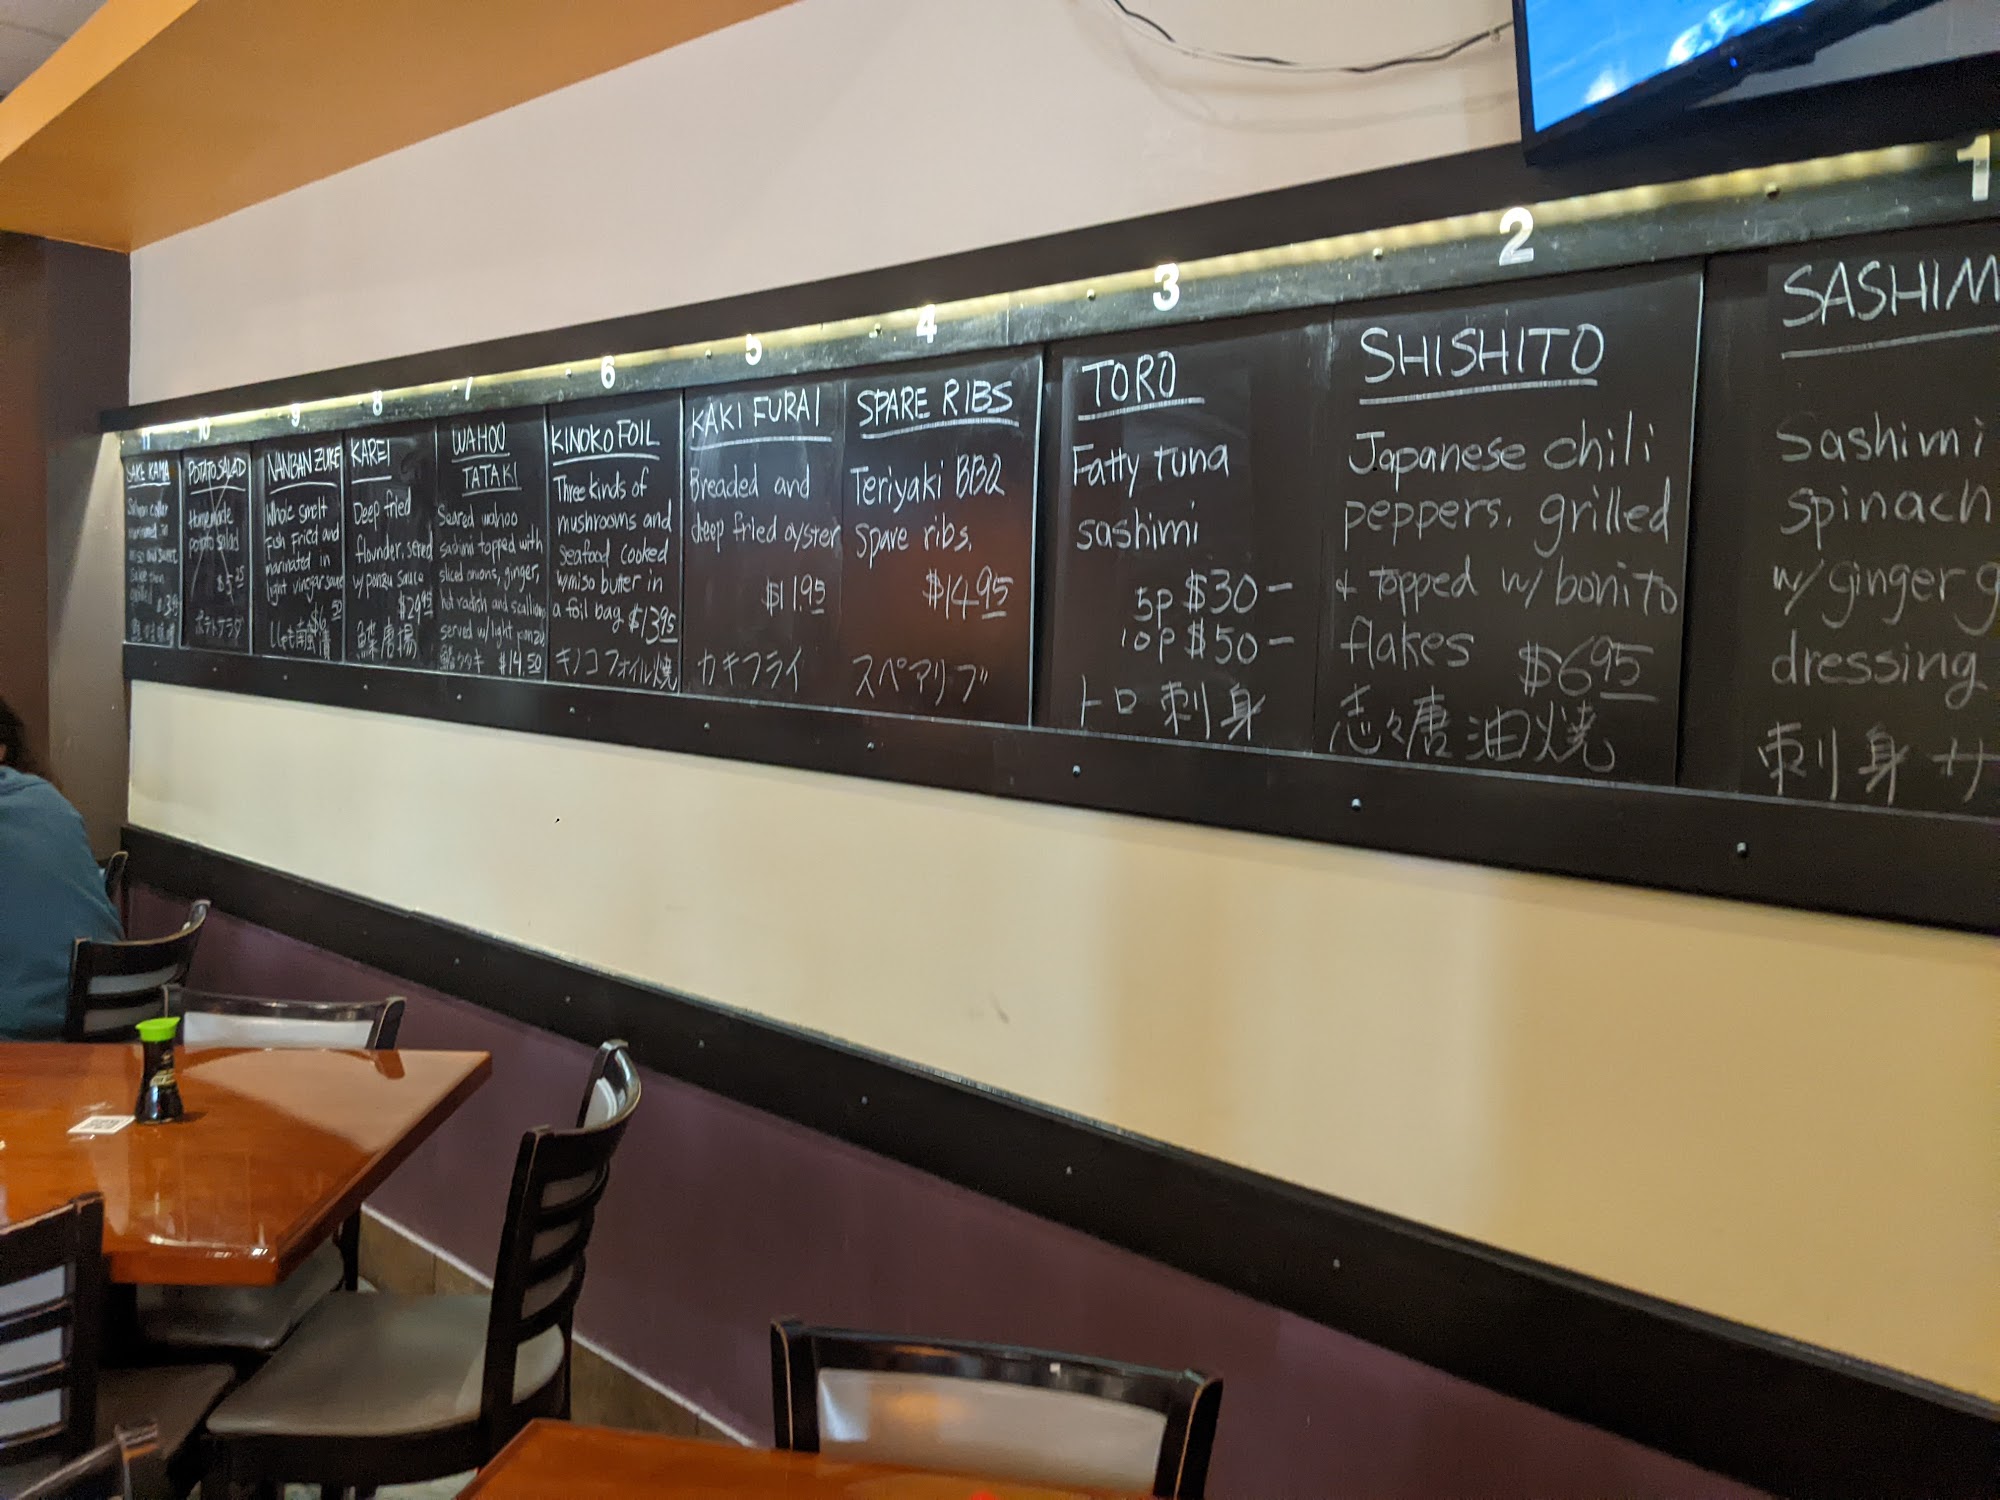 11
SAKE KAMA
Salmon collar
marinated in
miso and sweet
sake then
grilled
10
POTATO SALAD
Homemade
potato salad
$5.25
ポテトサラダ
9
NANBAN ZUKE
Whole smelt
fish fried and
marinated in
light vinegar sauce
ししゃも南蛮漬
8
KAREI
Deep fried
flounder, served
w/ ponzu sauce
$29.95
鰈唐揚
7
WAHOO
TATAKI
Seared wahoo
sashimi topped with
sliced onions, ginger,
hot radish and scallions
served w/ light ponzu
タタキ $14.50
6
KINOKO FOIL
Three kinds of
mushrooms and
seafood cooked
w/miso butter in
a foil bag $13.95
キノコフォイル焼
5
KAKI FURAI
Breaded and
deep fried oyster
$11.95
カキフライ
4
SPARE RIBS
Teriyaki BBQ
Spare ribs,
$14.95
スペアリブ
3
TORO
Fatty tuna
sashimi
5p $30-
10p $50-
トロ刺身
2
SHISHITO
Japanese chili
peppers, grilled
+ topped w/ bonito
flakes $6.95
志々唐油焼
1
SASHIM
Sashimi
Spinach
w/ ginger g
dressing
刺身サ